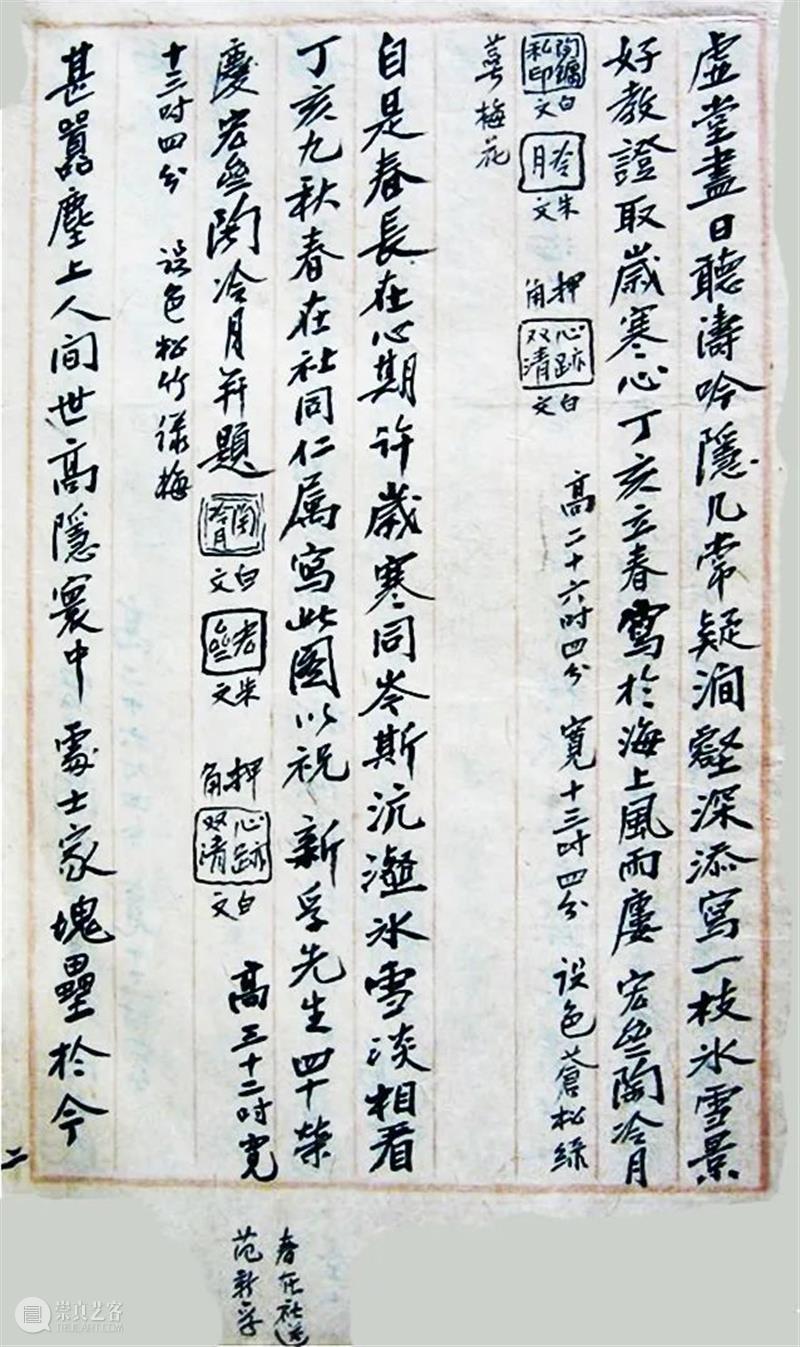 虛堂盡日聽濤吟隱几常疑澗壑深添寫一枝氷雪景
好教證取嵗寒心丁亥立春寫於海上風雨廔 宏斋陶冷月
陶鏞私印 白文 冷月 朱文 押角 心跡双清 白文 高二十六吋四分 寬十三吋四分 设色蒼松綠
萼梅花
自是春長在心期许嵗寒同岑斯沆瀣氷雪淡相看
丁亥九秋春在社同仁属寫此圖以祝 新孚先生四十榮
慶宏斋陶冷月并題 陶冷月 白文 宏斋 朱文 押角 心跡双清 白文 高三十二吋寬
十三吋四分 设色松竹綠梅
甚囂塵上人间世高隱寰中處士家塊壘於今
二
春在社送
范新孚
崇真艺客
TRUEART.COM